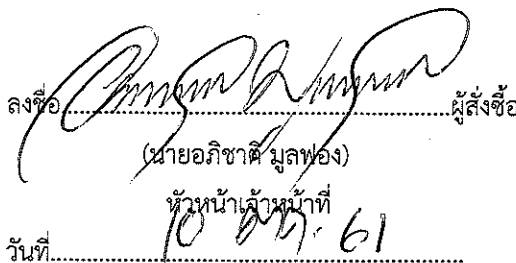 ลงชื่อ....................................................ผู้สั่งซื้อ
(นายอภิชาติ มูลฟอง)
หัวหน้าเจ้าหน้าที่
วันที่ 10 ต.ค. 61